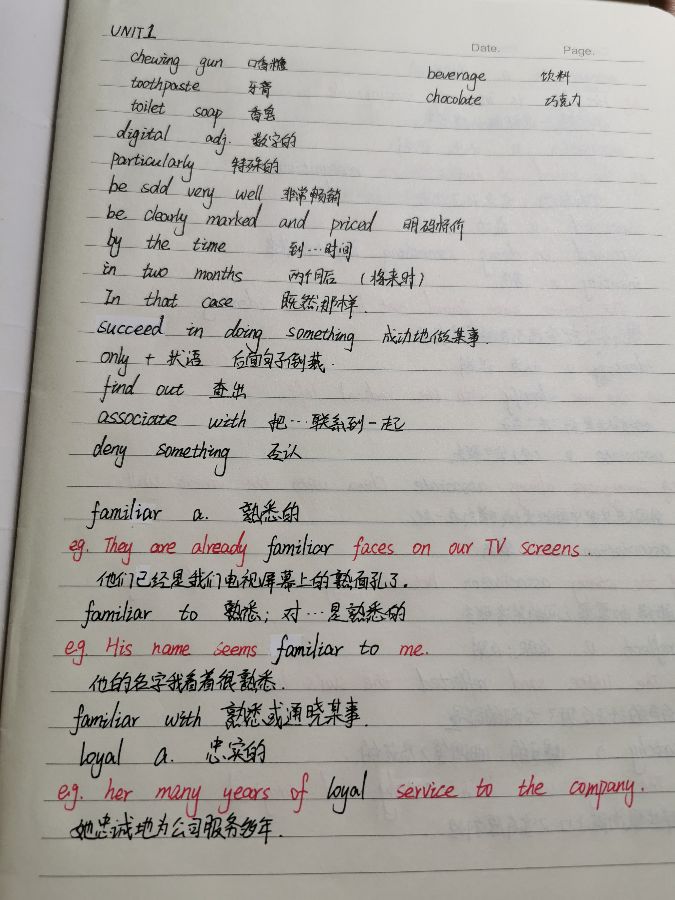 UNIT1
Date. Page.
chewing gun 口香糖
beverage 饮料
toothpaste 牙膏
chocolate 巧克力
toilet soap 香皂
digital adj. 数字的
particularly 特殊的
be sold very well 非常畅销
be clearly marked and priced 明码标价
by the time 到…时间
in two months 两个月后 (将来时)
In that case 既然那样.
succeed in doing something 成功地做某事.
only + 状语 后面句子倒装.
find out 查出
associate with 把…联系到一起
deny something 否认
familiar a. 熟悉的
eg. They are already familiar faces on our TV screens.
他们已经是我们电视屏幕上的熟面孔了.
familiar to 熟悉; 对…是熟悉的
eg. His name seems familiar to me.
他的名字我看着很熟悉.
familiar with 熟悉或通晓某事.
loyal a. 忠实的
e.g. her many years of loyal service to the company.
她忠诚地为公司服务多年.